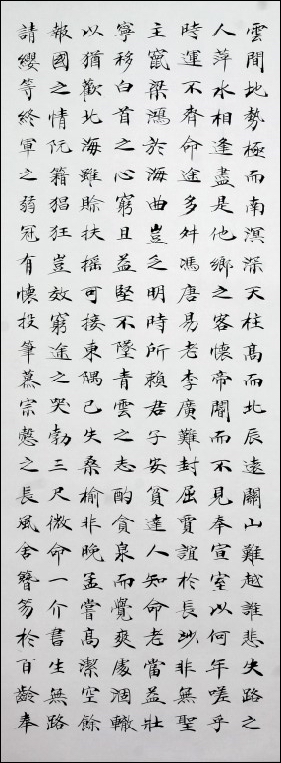 雲間地勢極而南溟深天柱高而北辰遠關山難越誰悲失路之
人萍水相逢盡是他鄉之客懷帝閽而不見奉宣室以何年嗟乎
時運不齊命途多舛馮唐易老李廣難封屈賈誼於長沙非無聖
主竄梁鴻於海曲豈乏明時所賴君子安貧達人知命老當益壯
寧移白首之心窮且益堅不墜青雲之志酌貪泉而覺爽處涸轍
以猶歡北海雖賒扶搖可接東隅已失桑榆非晚孟嘗高潔空餘
報國之情阮籍猖狂豈效窮途之哭勃三尺微命一介書生無路
請纓等終軍之弱冠有懷投筆慕宗愨之長風舍簪笏於百齡奉